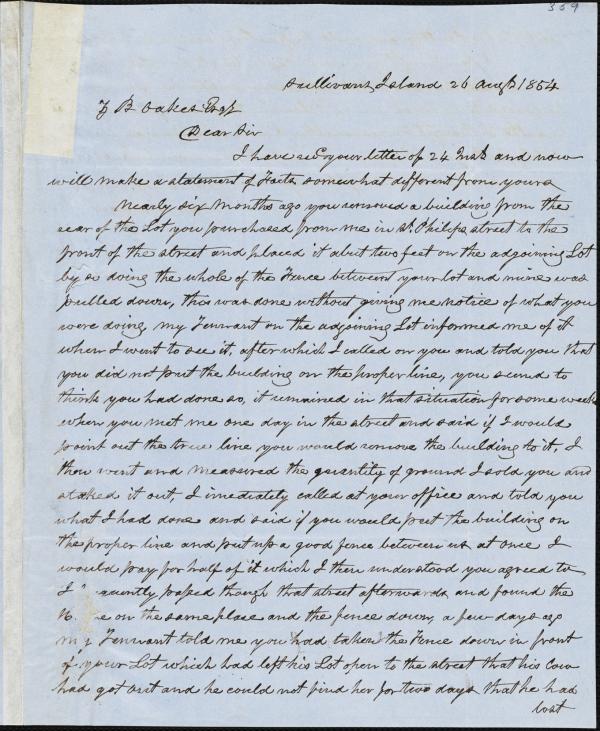 359
Sullivans Island 26 Augt 1854
Z B Oakes Esqr
Dear Sir
I have recd your letter of 24 Inst and now
will make a statement of Facts somewhat different from yours
Nearly six months ago you removed a building from the
rear of the Lot you purchased from me in St Philips street to the
front of the street and placed it abut two feet on the adjoining Lot
by so doing the whole of the Fence between your lot and mine was
pulled down, this was done without giving me notice of what you
were doing, my Tennant on the adjoining Lot informed me of it
when I went to see it, after which I called on you and told you that
you did not put the building on the proper line, you seemd to
think you had done so, it remained in that situation for some weeks
when you met me one day in the street and said if I would
point out the true line you would remove the building to it, I
then went and measured the quantity of ground I sold you and
staked it out, I imediately called at your office and told you
what I had done and said if you would put the building on
the proper line and put up a good fence between us at once I
would pay for half of it which I then understood you agreed to
I quently passed though that street afterwards and found the
on the same place and the fence down, a few days ago
my Tennant told me you had taken the Fence down in front
of your Lot which had left his Lot open to the street that his Cow
had got out and he could not find her for two days that he had
lost